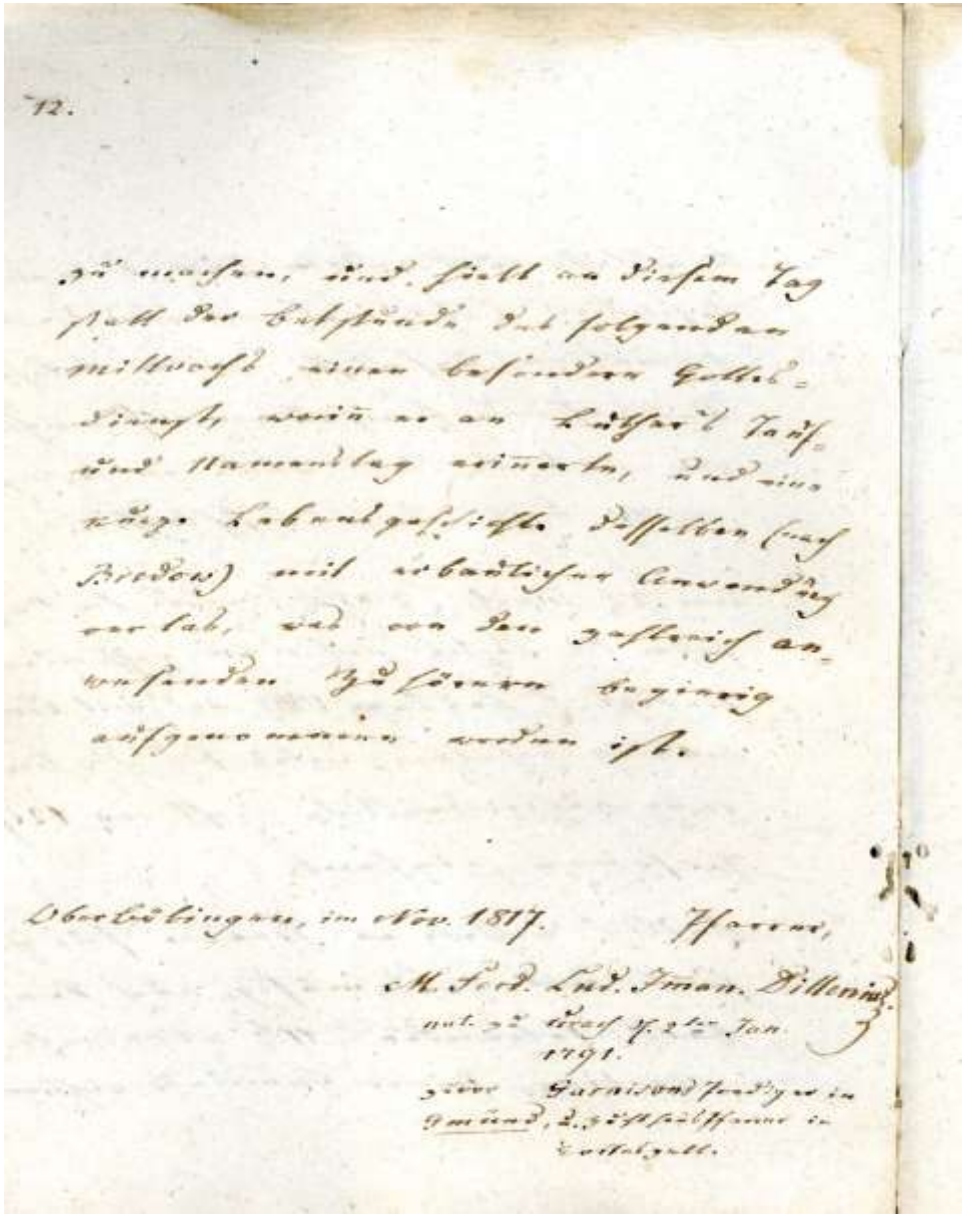 12.
zu machen, und hielt an diesem Tag
statt der Betstunde des folgenden
Mittwochs einen besondern Gottes=
dienst, worin̅ er an Luther's Tauf=
und Namenstag erin̅erte, und eine
kurze Lebensgeschichte desselben (nach
Bredow) mit erbaulicher Anwendung
verlas, was von den zahlreich an=
wesenden Zuhörern begierig
aufgenommen worden ist.
OberBöbingen, im Nov. 1817. Pfarrer,
M. Ferd. Lud. Iman. Dillenius.
nat. zu Urach d. 2ten Jan.
1791.
zuvor Garnisons Prediger in
Gmünd, u. Zuchthauspfarrer in
Gotteszell.